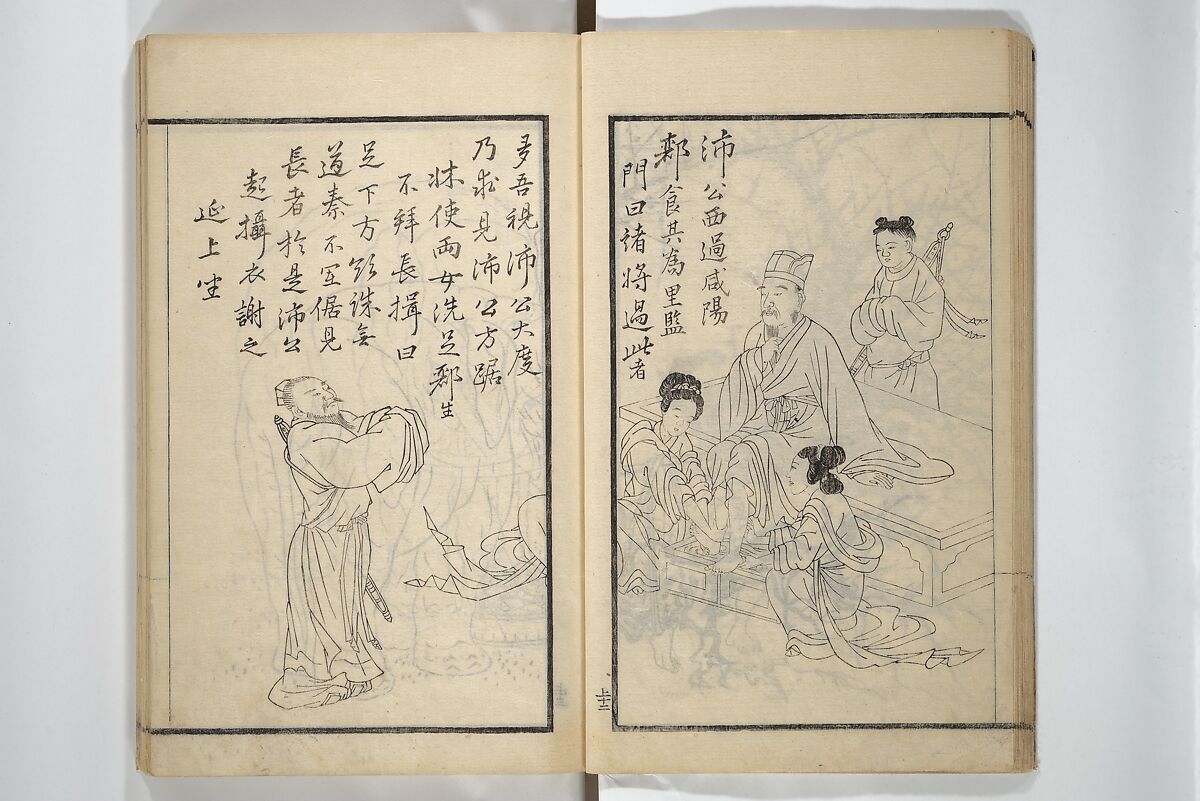 沛公西過咸陽
酈食其為里監
門曰諸將過此者
多吾視沛公大度
乃求見沛公方踞
牀使兩女洗足酈生
不拜長揖曰
足下方欲誅無
道秦不宜倨見
長者於是沛公
起攝衣謝之
延上坐
上十二